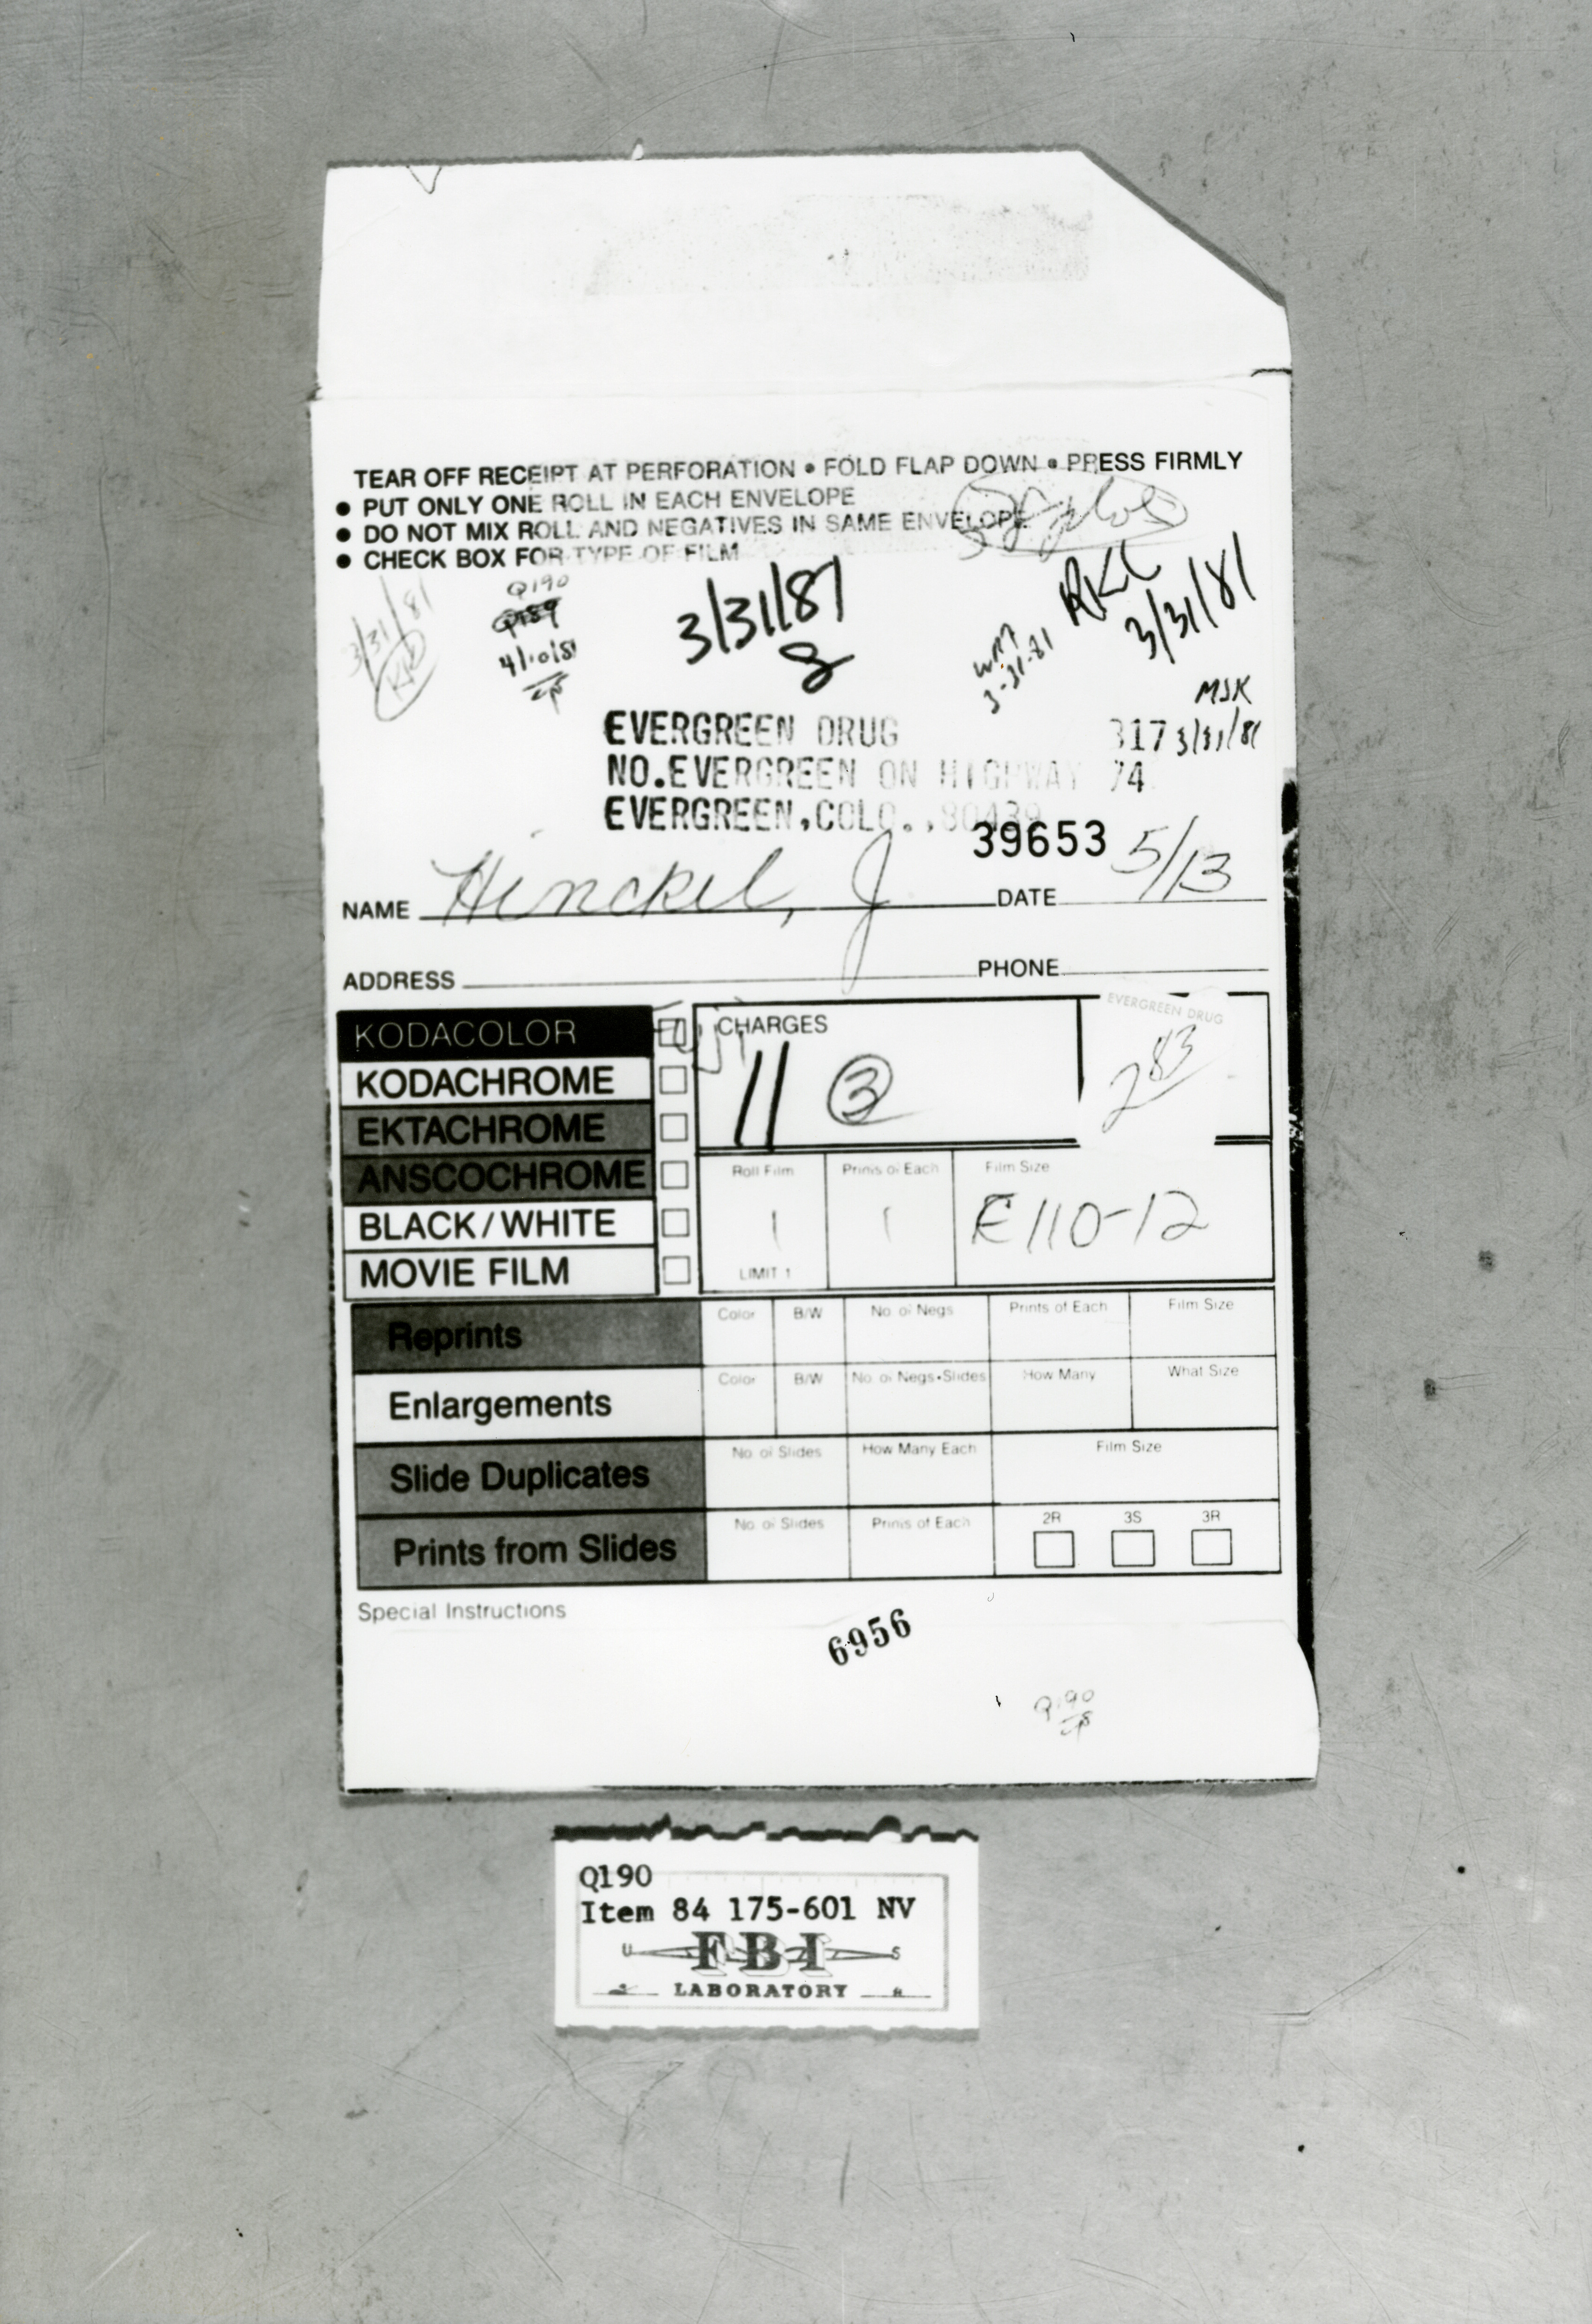 TEAR OFF RECEIPT AT PERFORATION • FOLD FLAP DOWN • PRESS FIRMLY
• PUT ONLY ONE ROLL IN EACH ENVELOPE
• DO NOT MIX ROLL AND NEGATIVES IN SAME ENVELOPE
• CHECK BOX FOR TYPE OF FILM
3/31/81
Q190
Q189
4/10/81
3/31/81
8
WMT
3-31-81
RKC
3/31/81
MJK
3/31/81
EVERGREEN DRUG 317
NO.EVERGREEN ON HIGHWAY 74
EVERGREEN,COLO.,80439
39653
NAME Hinckel, J DATE 5/13
ADDRESS PHONE
KODACOLOR
KODACHROME
EKTACHROME
ANSCOCHROME
BLACK/WHITE
MOVIE FILM
CHARGES
11 3
EVERGREEN DRUG
2 83
Roll Film Prints of Each Film Size
1 1 E110-12
LIMIT 1
Reprints Color B/W No. of Negs Prints of Each Film Size
Enlargements Color B/W No. of Negs•Slides How Many What Size
Slide Duplicates No. of Slides How Many Each Film Size
Prints from Slides No. of Slides Prints of Each 2R 3S 3R
Special Instructions
6956
Q190
Q190
Item 84 175-601 NV
U FBI S
LABORATORY